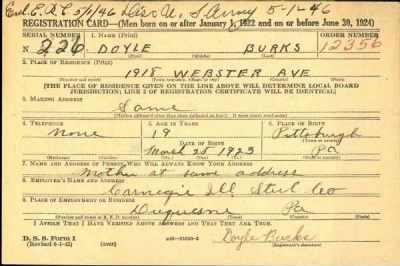 5/1/46 Disc U. S Army 5-1-46
REGISTRATION CARD—(Men born on or after January 1, 1922 and on or before June 30, 1924)
SERIAL NUMBER 1. NAME (Print) ORDER NUMBER
N 226 DOYLE BURKS 12356
2. PLACE OF RESIDENCE (Print)
1918 WEBSTER AVE
[THE PLACE OF RESIDENCE GIVEN ON THE LINE ABOVE WILL DETERMINE LOCAL BOARD
JURISDICTION; LINE 2 OF REGISTRATION CERTIFICATE WILL BE IDENTICAL]
3. MAILING ADDRESS
Same
4. TELEPHONE 5. AGE IN YEARS 6. PLACE OF BIRTH
None 19 Pittsburgh
DATE OF BIRTH
March 25 1923 Pa
7. NAME AND ADDRESS OF PERSON WHO WILL ALWAYS KNOW YOUR ADDRESS
Mother at same address
8. EMPLOYER'S NAME AND ADDRESS
Carnegie Ill Steel Co
9. PLACE OF EMPLOYMENT OR BUSINESS
Duquesne Pa
I AFFIRM THAT I HAVE VERIFIED ABOVE ANSWERS AND THAT THEY ARE TRUE.
D. S. S. Form 1
(Revised 6-1-42) Doyle Burks